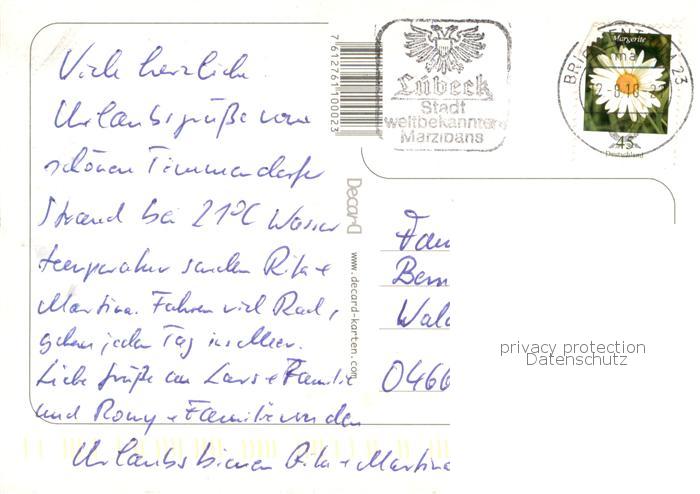 Viele herzliche
Urlaubsgrüße vom
schönen Timmendorfer
Strand bei 21°C Wasser
temperatur senden Rita +
Martina. Fahren viel Rad,
gehen jeden Tag ins Meer.
Liebe Grüße an Lars + Familie
und Romy + Familie von den
Urlaubsbienen Rita + Martina
7612761100023
Decard
www.decard-karten.com
Lübeck
Stadt
weltbekannten
Marzipans
BRIEFZENTRUM 23
Margerite
45
Deutschland
Fam
Bern
Wald
0466
privacy protection
Datenschutz